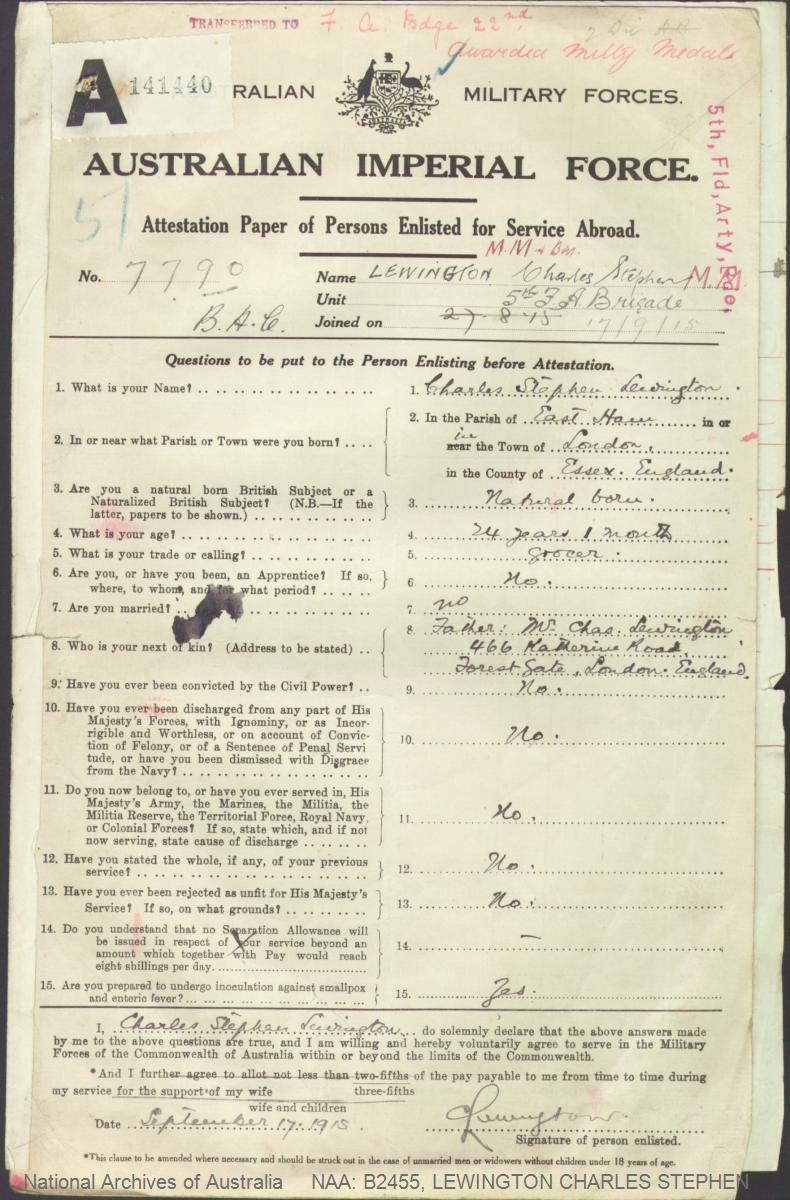 TRANSFERRED TO F A Bdge 22nd
Awarded Milty Medal
A 141440 RALIAN MILITARY FORCES.
AUSTRALIAN IMPERIAL FORCE.
5th, Fld, Arty, Bde,
51
Attestation Paper of Persons Enlisted for Service Abroad.
M.M & Bar.
No. 7790 Name LEWINGTON Charles Stephen M.M.
Unit 5th F.A Brigade
B.A.C. Joined on 27-8-15 17/9/15
Questions to be put to the Person Enlisting before Attestation.
1. What is your Name? 1. Charles Stephen Lewington
2. In or near what Parish or Town were you born? 2. In the Parish of East Ham in or
in near the Town of London,
in the County of Essex. England.
3. Are you a natural born British Subject or a
Naturalized British Subject? (N.B.—If the
latter, papers to be shown.) 3. Natural born.
4. What is your age? 4. 24 years 1 month
5. What is your trade or calling? 5. grocer.
6. Are you, or have you been, an Apprentice? If so,
where, to whom, and for what period? 6. No.
7. Are you married? 7. no
8. Who is your next of kin? (Address to be stated) 8. Father: Mr Chas. Lewington
466 Katherine Road,
Forest Gate, London. England.
9. Have you ever been convicted by the Civil Power? 9. No.
10. Have you ever been discharged from any part of His
Majesty's Forces, with Ignominy, or as Incor-
rigible and Worthless, or on account of Convic-
tion of Felony, or of a Sentence of Penal Servi
tude, or have you been dismissed with Disgrace
from the Navy? 10. No.
11. Do you now belong to, or have you ever served in, His
Majesty's Army, the Marines, the Militia, the
Militia Reserve, the Territorial Force, Royal Navy,
or Colonial Forces? If so, state which, and if not
now serving, state cause of discharge 11. No.
12. Have you stated the whole, if any, of your previous
service? 12. No.
13. Have you ever been rejected as unfit for His Majesty's
Service? If so, on what grounds? 13. No.
14. Do you understand that no Separation Allowance will
be issued in respect of your service beyond an
amount which together with Pay would reach
eight shillings per day. 14. —
15. Are you prepared to undergo inoculation against smallpox
and enteric fever? 15. Yes.
I, Charles Stephen Lewington do solemnly declare that the above answers made
by me to the above questions are true, and I am willing and hereby voluntarily agree to serve in the Military
Forces of the Commonwealth of Australia within or beyond the limits of the Commonwealth.
*And I further agree to allot not less than two-fifths of the pay payable to me from time to time during
three-fifths
my service for the support of my wife
wife and children
Date September 17. 1915. CLewington.
Signature of person enlisted.
*This clause to be amended where necessary and should be struck out in the case of unmarried men or widowers without children under 18 years of age.
National Archives of Australia NAA: B2455, LEWINGTON CHARLES STEPHEN